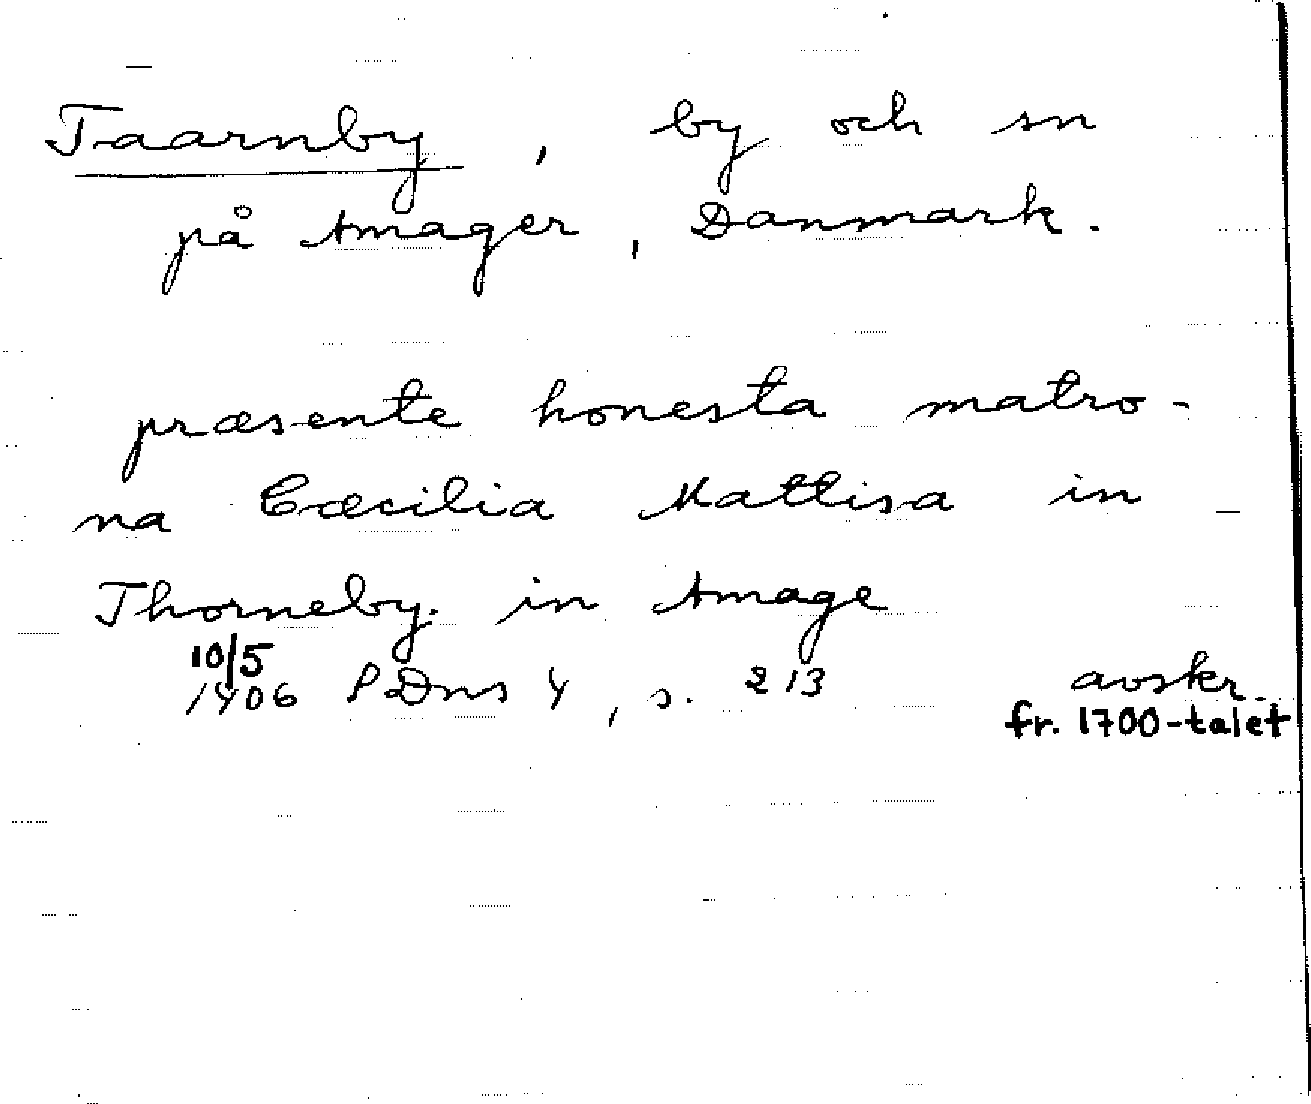 Taarnby, by och sn
på Amager, Danmark.
præsente honesta matro-
na Cæcilia Mattisa in
Thorneby. in Amage
10/5
1406 PDns 4, s. 213 avskr.
fr. 1700-talet